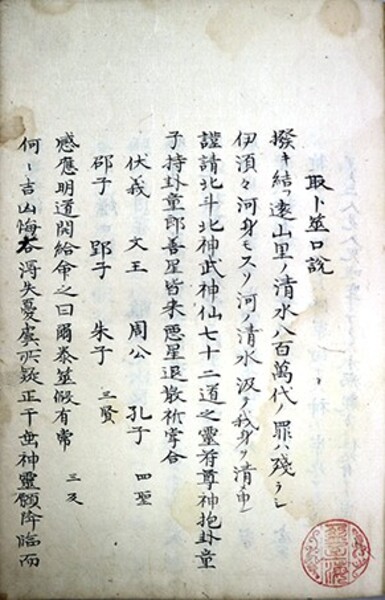 取卜筮口説
撥キ結フ遠山里ノ清水八百萬代ノ罪ハ殘ラシ
伊須々河身モスソノ河ノ清水汲テ我身ソ清ム
謹請北斗北神武神仙七十二道之靈宿尊神抱卦童
子持卦童郎善星皆来悪星退散祈掌合
伏義 文王 周公 孔子 四聖
邵子 程子 朱子 三賢
感應明道開給命之曰爾泰筮假有常 三反
何〻吉凶悔吝得失憂虞所疑正于卋神靈願降臨而